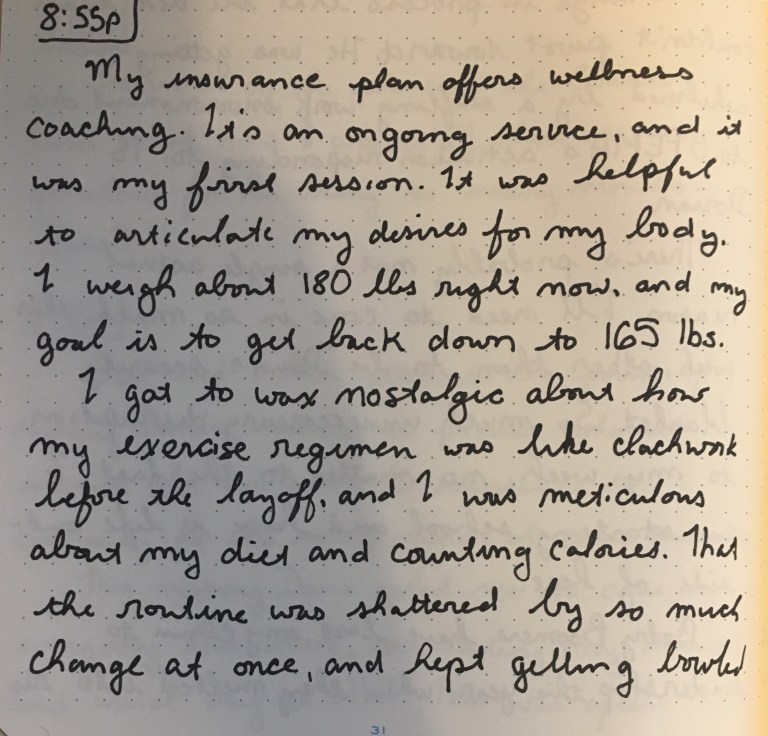 8:55p
My insurance plan offers wellness
coaching. It's an ongoing service, and it
was my first session. It was helpful
to articulate my desires for my body.
I weigh about 180 lbs right now, and my
goal is to get back down to 165 lbs.
I got to wax nostalgic about how
my exercise regimen was like clockwork
before the layoff, and I was meticulous
about my diet and counting calories. That
the routine was shattered by so much
change at once, and kept getting bowled
31